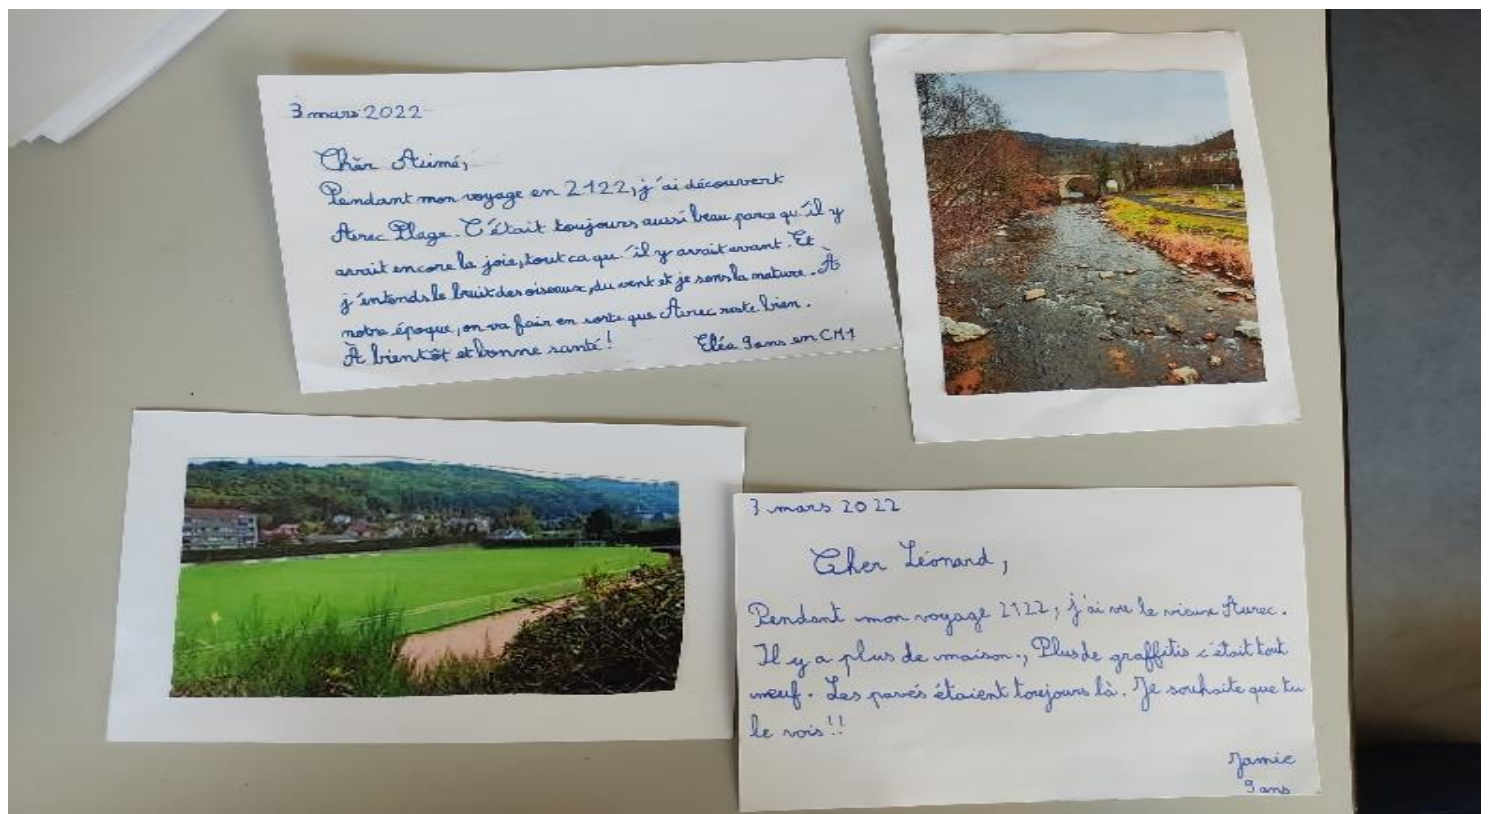 3 mars 2022
Chèr Aimé,
Pendant mon voyage en 2122, j'ai découvert
Aurec Plage. C'était toujours aussi beau parce qu'il y
avait encore la joie, tout ca qu'il y avait avant. Et
j'entends le bruit des oiseaux, du vent et je sens la nature. À
notre époque, on va fair en sorte que Aurec reste bien.
À bientôt et bonne santé !
Eléa 9 ans en CM1
3 mars 2022
Cher Léonard,
Pendant mon voyage 2122, j'ai vu le vieux Aurec.
Il y a plus de maison., Plus de graffitis c'était tout
neuf. Les pavés étaient toujours là. Je souhaite que tu
le vois !!
Jamie
9 ans